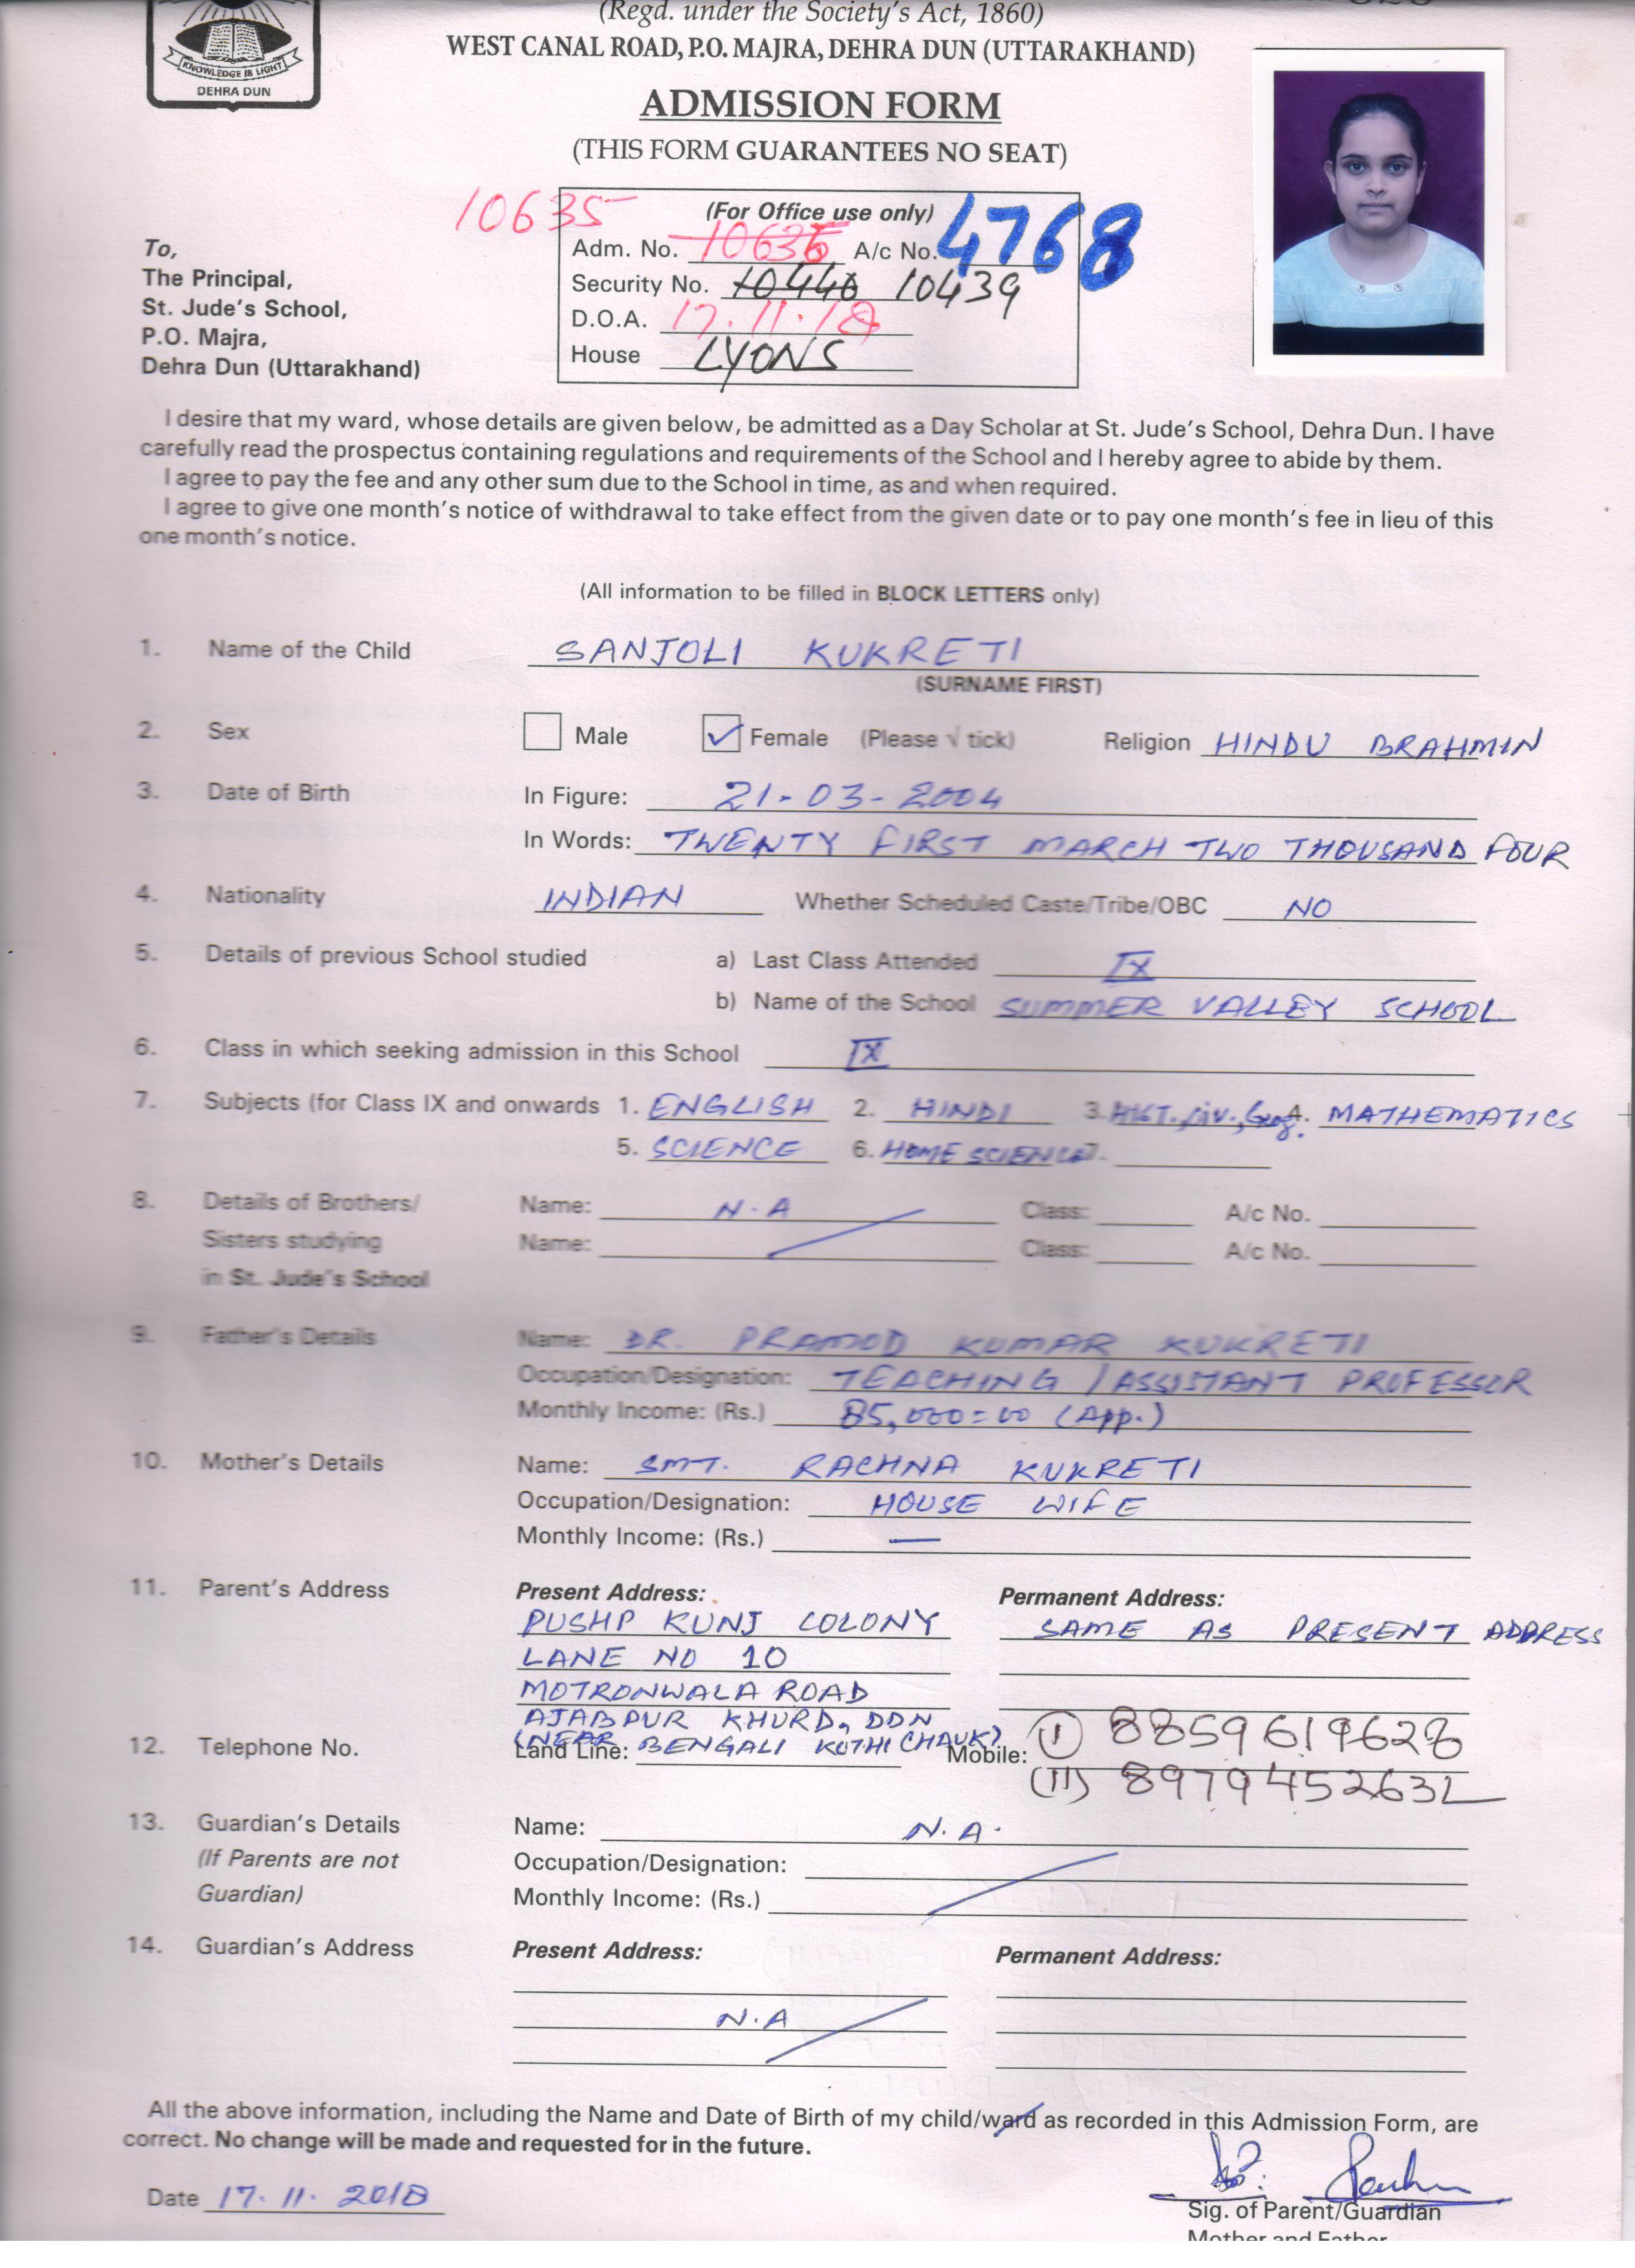 (Regd. under the Society's Act, 1860)
WEST CANAL ROAD, P.O. MAJRA, DEHRA DUN (UTTARAKHAND)
KNOWLEDGE IS LIGHT
DEHRA DUN
ADMISSION FORM
(THIS FORM GUARANTEES NO SEAT)
10635
(For Office use only)
Adm. No. 10636 A/c No. 4768
Security No. 10440 10439
D.O.A. 17.11.18
House LYONS
To,
The Principal,
St. Jude's School,
P.O. Majra,
Dehra Dun (Uttarakhand)
I desire that my ward, whose details are given below, be admitted as a Day Scholar at St. Jude's School, Dehra Dun. I have
carefully read the prospectus containing regulations and requirements of the School and I hereby agree to abide by them.
I agree to pay the fee and any other sum due to the School in time, as and when required.
I agree to give one month's notice of withdrawal to take effect from the given date or to pay one month's fee in lieu of this
one month's notice.
(All information to be filled in BLOCK LETTERS only)
1. Name of the Child SANJOLI KUKRETI
(SURNAME FIRST)
2. Sex Male Female (Please √ tick) Religion HINDU BRAHMIN
3. Date of Birth In Figure: 21-03-2004
In Words: TWENTY FIRST MARCH TWO THOUSAND FOUR
4. Nationality INDIAN Whether Scheduled Caste/Tribe/OBC NO
5. Details of previous School studied a) Last Class Attended IX
b) Name of the School SUMMER VALLEY SCHOOL
6. Class in which seeking admission in this School IX
7. Subjects (for Class IX and onwards 1. ENGLISH 2. HINDI 3. HIST., Civ., Geog. 4. MATHEMATICS
5. SCIENCE 6. HOME SCIENCE 7.
8. Details of Brothers/ Name: N.A Class: A/c No.
Sisters studying Name: Class: A/c No.
in St. Jude's School
9. Father's Details Name: DR. PRAMOD KUMAR KUKRETI
Occupation/Designation: TEACHING / ASSISTANT PROFESSOR
Monthly Income: (Rs.) 85,000=00 (App.)
10. Mother's Details Name: SMT. RACHNA KUKRETI
Occupation/Designation: HOUSE WIFE
Monthly Income: (Rs.) —
11. Parent's Address Present Address: Permanent Address:
PUSHP KUNJ COLONY SAME AS PRESENT ADDRESS
LANE NO 10
MOTRONWALA ROAD
AJABPUR KHURD, DDN
(NEAR BENGALI KOTHI CHAUK)
12. Telephone No. Land Line: Mobile: (I) 8859619628
(II) 8979452632
13. Guardian's Details Name: N.A.
(If Parents are not Occupation/Designation:
Guardian) Monthly Income: (Rs.)
14. Guardian's Address Present Address: Permanent Address:
N.A
All the above information, including the Name and Date of Birth of my child/ward as recorded in this Admission Form, are
correct. No change will be made and requested for in the future.
Date 17.11.2018
Sig. of Parent/Guardian
Mother and Father